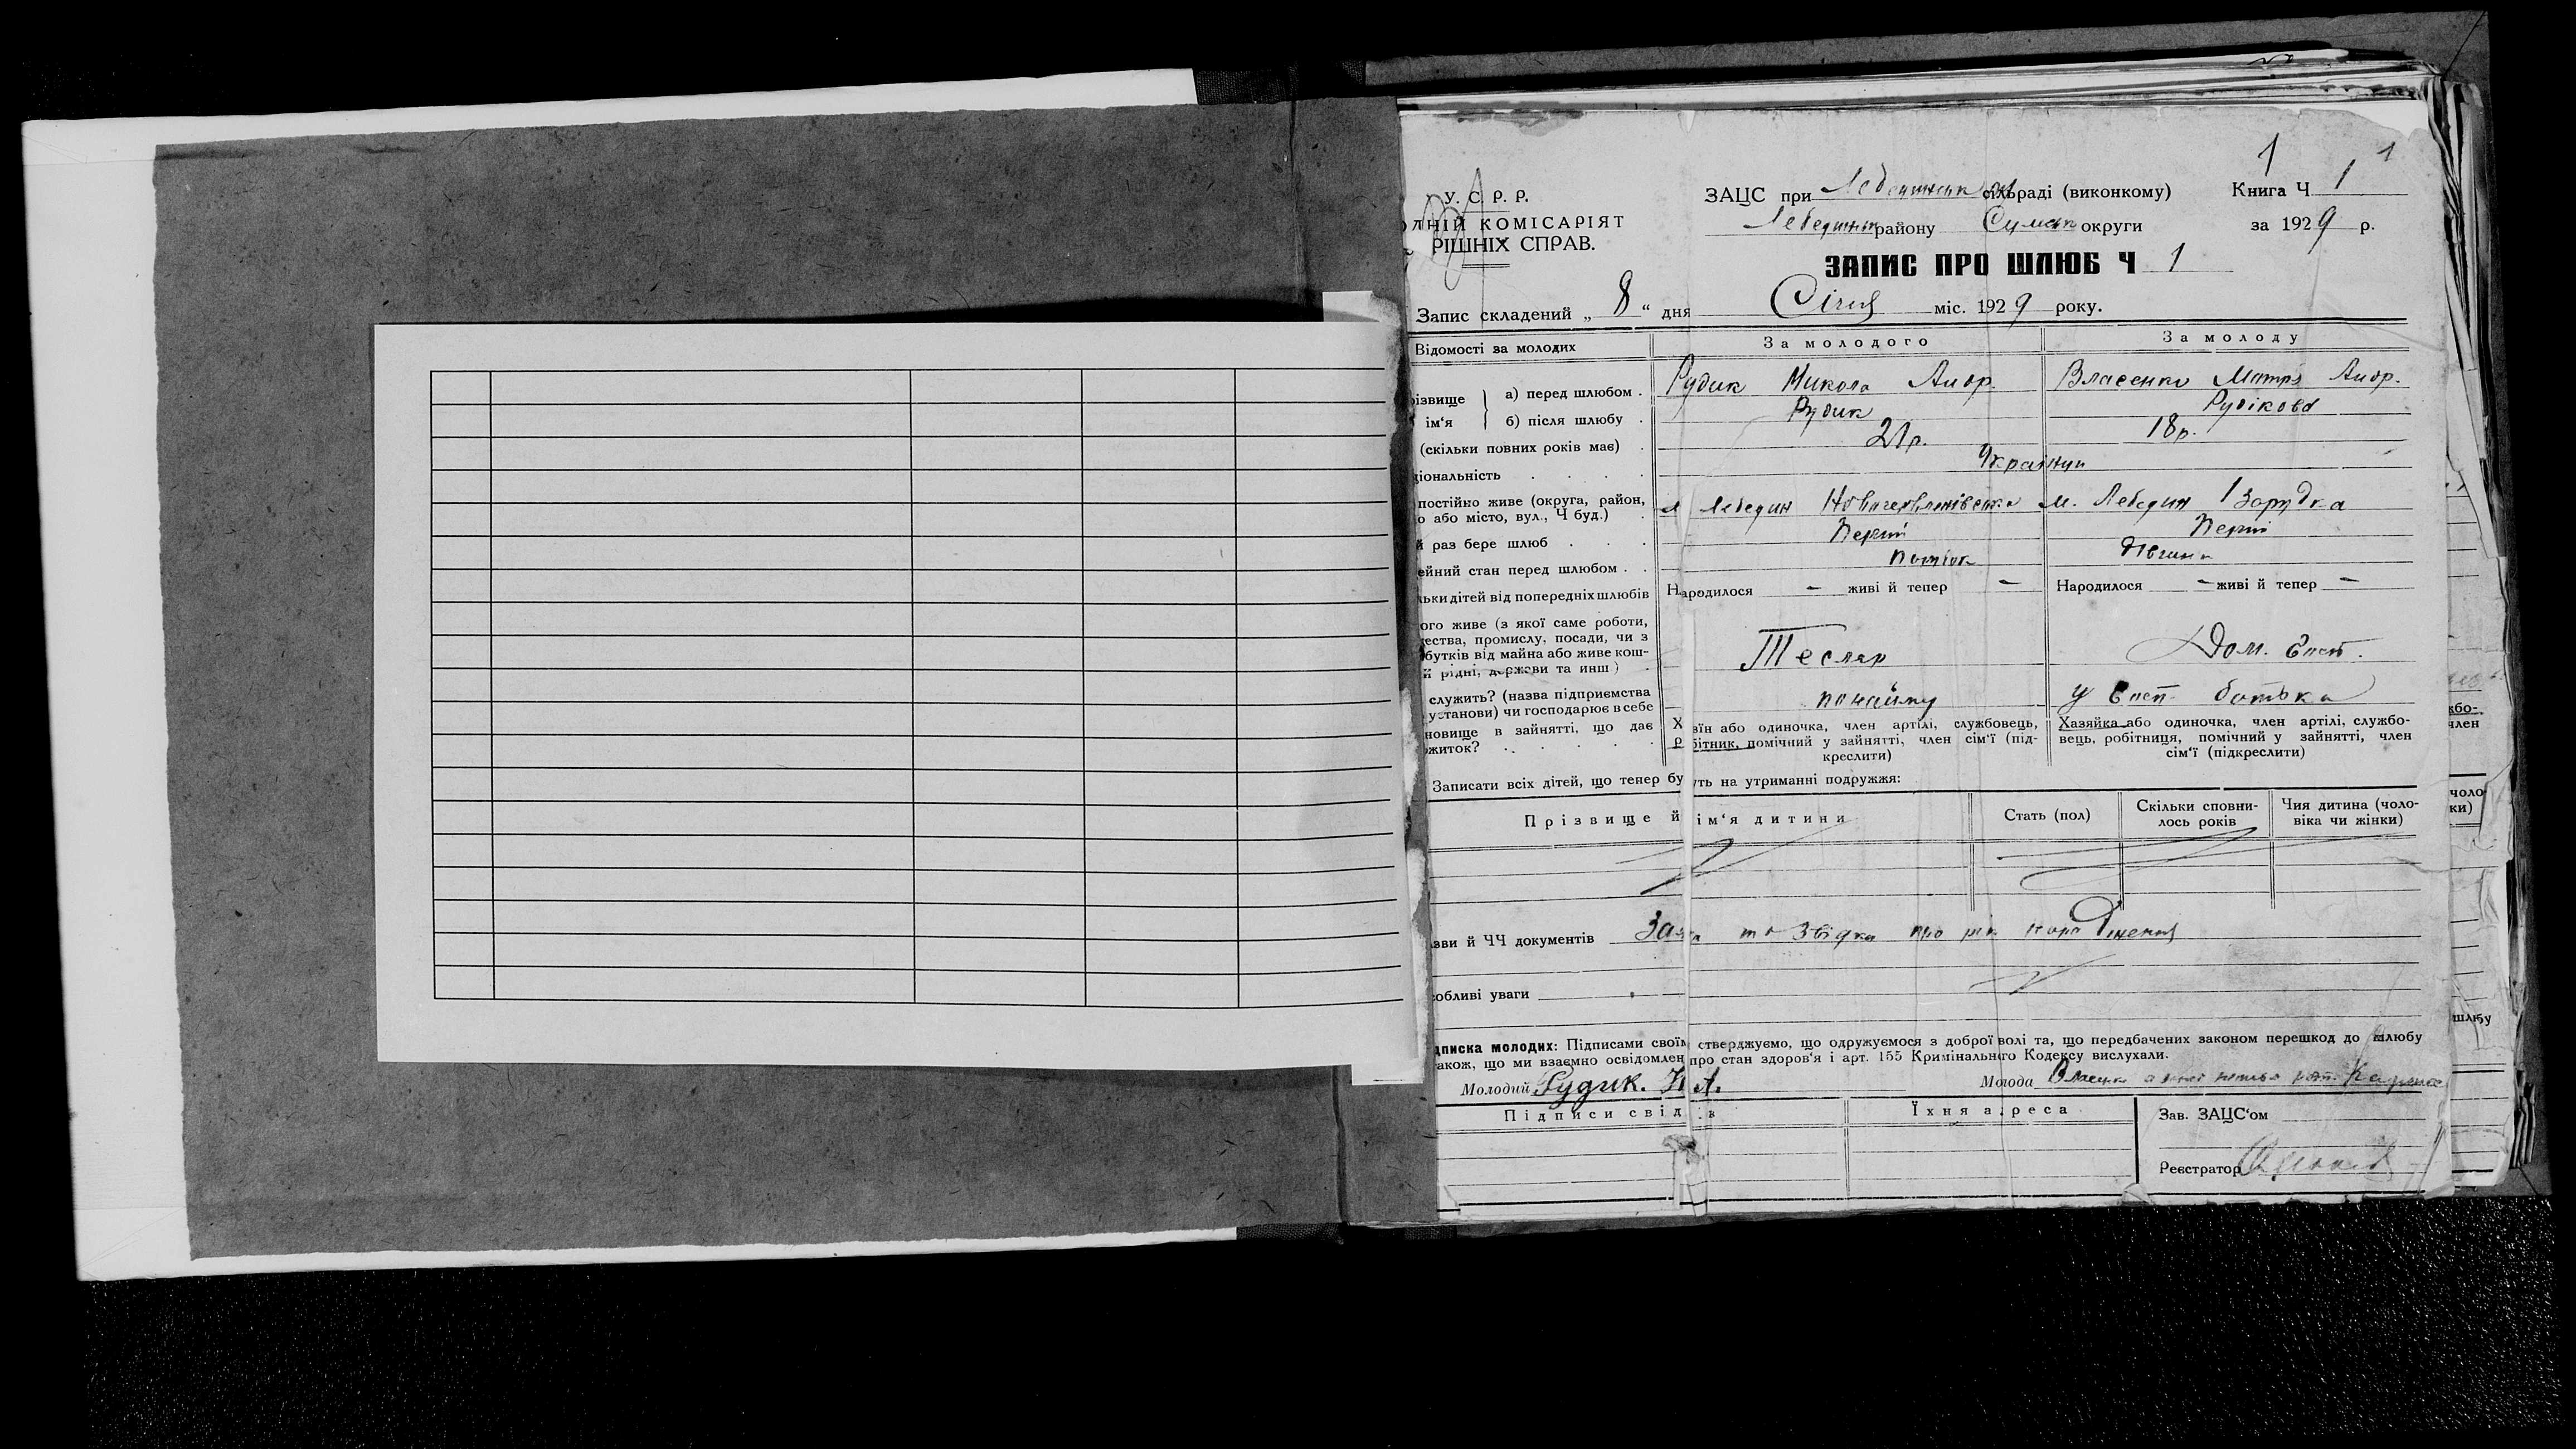 1 1
У. С. Р. Р.
ЛНІЙ КОМІСАРІЯТ
РІШНІХ СПРАВ.
ЗАЦС при Лебединськ сільраді (виконкому) Книга Ч 1
Лебединськ району Сумськ округи за 1929 р.
ЗАПИС ПРО ШЛЮБ Ч 1
Запис складений „ 8 “ дня Січня міс. 1929 року.
Відомості за молодих За молодого За молоду
різвище ім‘я а) перед шлюбом . Рудик Микола Андр. Власенко Мотря Андр.
б) після шлюбу . Рудик Рудікова
(скільки повних років має) . 21 р. 18 р.
ціональність . . . . Українци
постійно живе (округа, район,
о або місто, вул., Ч буд.) . м Лебедин м. Лебедин 1 Зарудка
й раз бере шлюб . . . Перши Перши
ейний стан перед шлюбом . . дівчина
льки дітей від попередніх шлюбів Народилося – живі й тепер – Народилося – живі й тепер –
ого живе (з якої саме роботи,
ества, промислу, посади, чи з
бутків від майна або живе кош-
й рідні, держави та инш ) . Тесляр Дом. Госп.
служить? (назва підприємства
установи) чи господарює в себе понайму у Госп. батька
новище в зайнятті, що дає
житок? . . . . .
Х зїн або одиночка, член артілі, службовець,
р бітник, помічний у зайнятті, член сім‘ї (під-
креслити)
Хазяйка або одиночка, член артілі, службо-
вець, робітниця, помічний у зайнятті, член
сім‘ї (підкреслити)
Записати всіх дітей, що тепер бу уть на утриманні подружжя:
Прізвище й ім‘я дитини Стать (пол) Скільки сповни-
лось років Чия дитина (чоло-
віка чи жінки)
зви й ЧЧ документів Заява та Звідка про рік народження
собливі уваги
дписка молодих: Підписами своїм стверджуємо, що одружуємося з доброї волі та, що передбачених законом перешкод до шлюбу
акож, що ми взаємно освідомлен про стан здоров‘я і арт. 155 Кримінального Кодексу вислухали.
Молодий Рудик. Н А. Молода Власенко
Підписи свід в Їхня адреса Зав. ЗАЦС‘ом
Реєстратор
кбо-
член
чоло
ки)
шлюбу